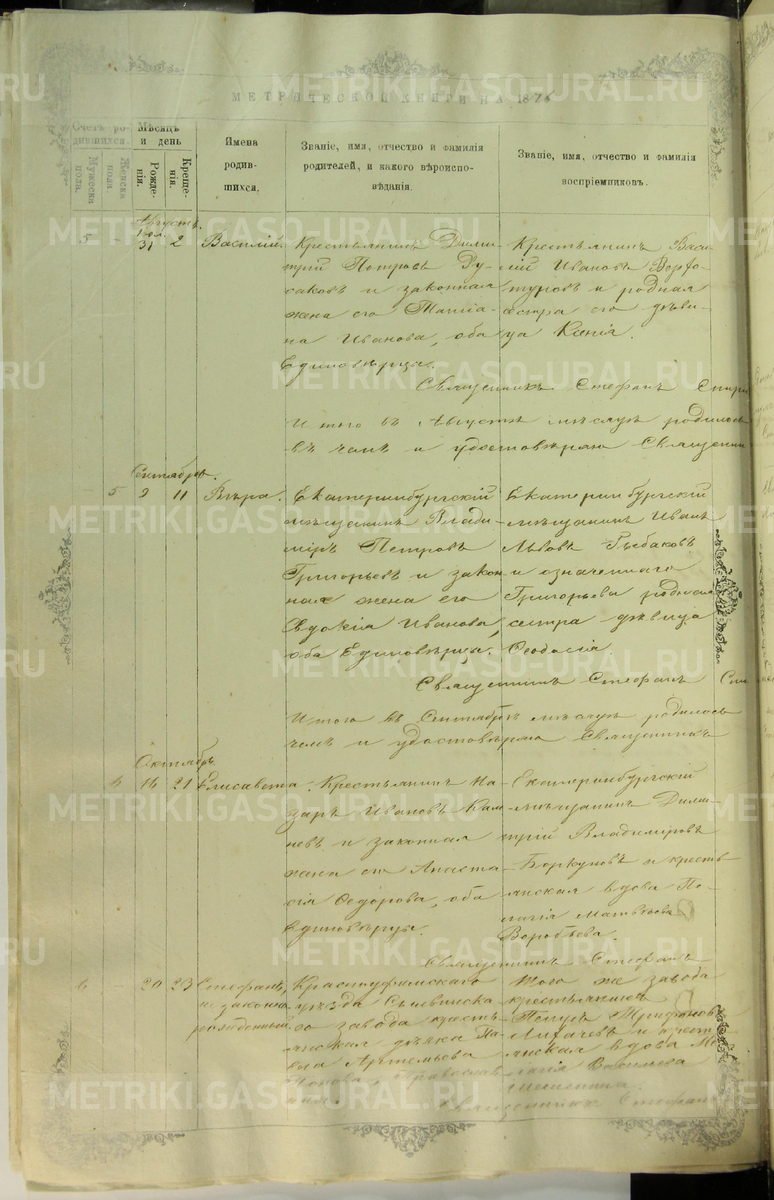 МЕТРИЧЕСКОЙ КНИГИ НА 1876
Счетъ родившихся.
Мужеска пола.
Женска пола.
Мѣсяцъ и день
Рожденія.
Крещенія.
Имена родившихся.
Званіе, имя, отчество и фамилія родителей, и какого вѣроисповѣданія.
Званіе, имя, отчество и фамилія воспріемниковъ.
Августъ.
Іюл.
5 - 31 2 Василій.
Крестьянинъ Дими-
трій Петровъ Ру-
саковъ и законная
жена его Татіа-
на Иванова, оба
Единовѣрцы.
Крестьянинъ Васи-
лій Ивановъ Верхо-
туровъ и родная
сестра его дѣви-
ца Ксенія.
Священникъ Стефанъ
Итого въ Августѣ мѣсяцѣ родилось
въ чемъ и удостовѣряю Священни
Сентябрь.
- 5 9 11 Вѣра.
Екатеринбургскій
мѣщанинъ Влади-
міръ Петровъ
Григорьевъ и закон-
ная жена его
Евдокія Иванова,
оба Единовѣрцы.
Екатеринбургскій
мѣщанинъ Иванъ
Львовъ Рыбаковъ
и означеннаго
Григорьева родная
сестра дѣвица
Ѳеодосія.
Священникъ Стефанъ
Итого въ Сентябрѣ мѣсяцѣ родилось
чемъ и удостовѣряю Священникъ
Октябрь
- 6 16 21 Елисавета.
Крестьянинъ На-
заръ Ивановъ
и законная
жена его Анаста-
сія Ѳедорова, оба
единовѣрцы.
Екатеринбургскій
мѣщанинъ Дими-
трій Владиміровъ
и кресть-
янская вдова Пе-
лагія Матвѣева
Воробьева.
Священникъ Стефанъ
6 - 20 23 Стефанъ,
незаконно
рожденный
Красноуфимскаго
уѣзда Сылвинска-
го завода кресть-
янская дѣвка Па-
Артемьева
Попова, Православ-
Того же завода
крестьянинъ
Петръ Трифоновъ
Лихачевъ и крест-
янская вдова
Васильева
Священникъ Стефанъ
METRIKI.GASO-URAL.RU